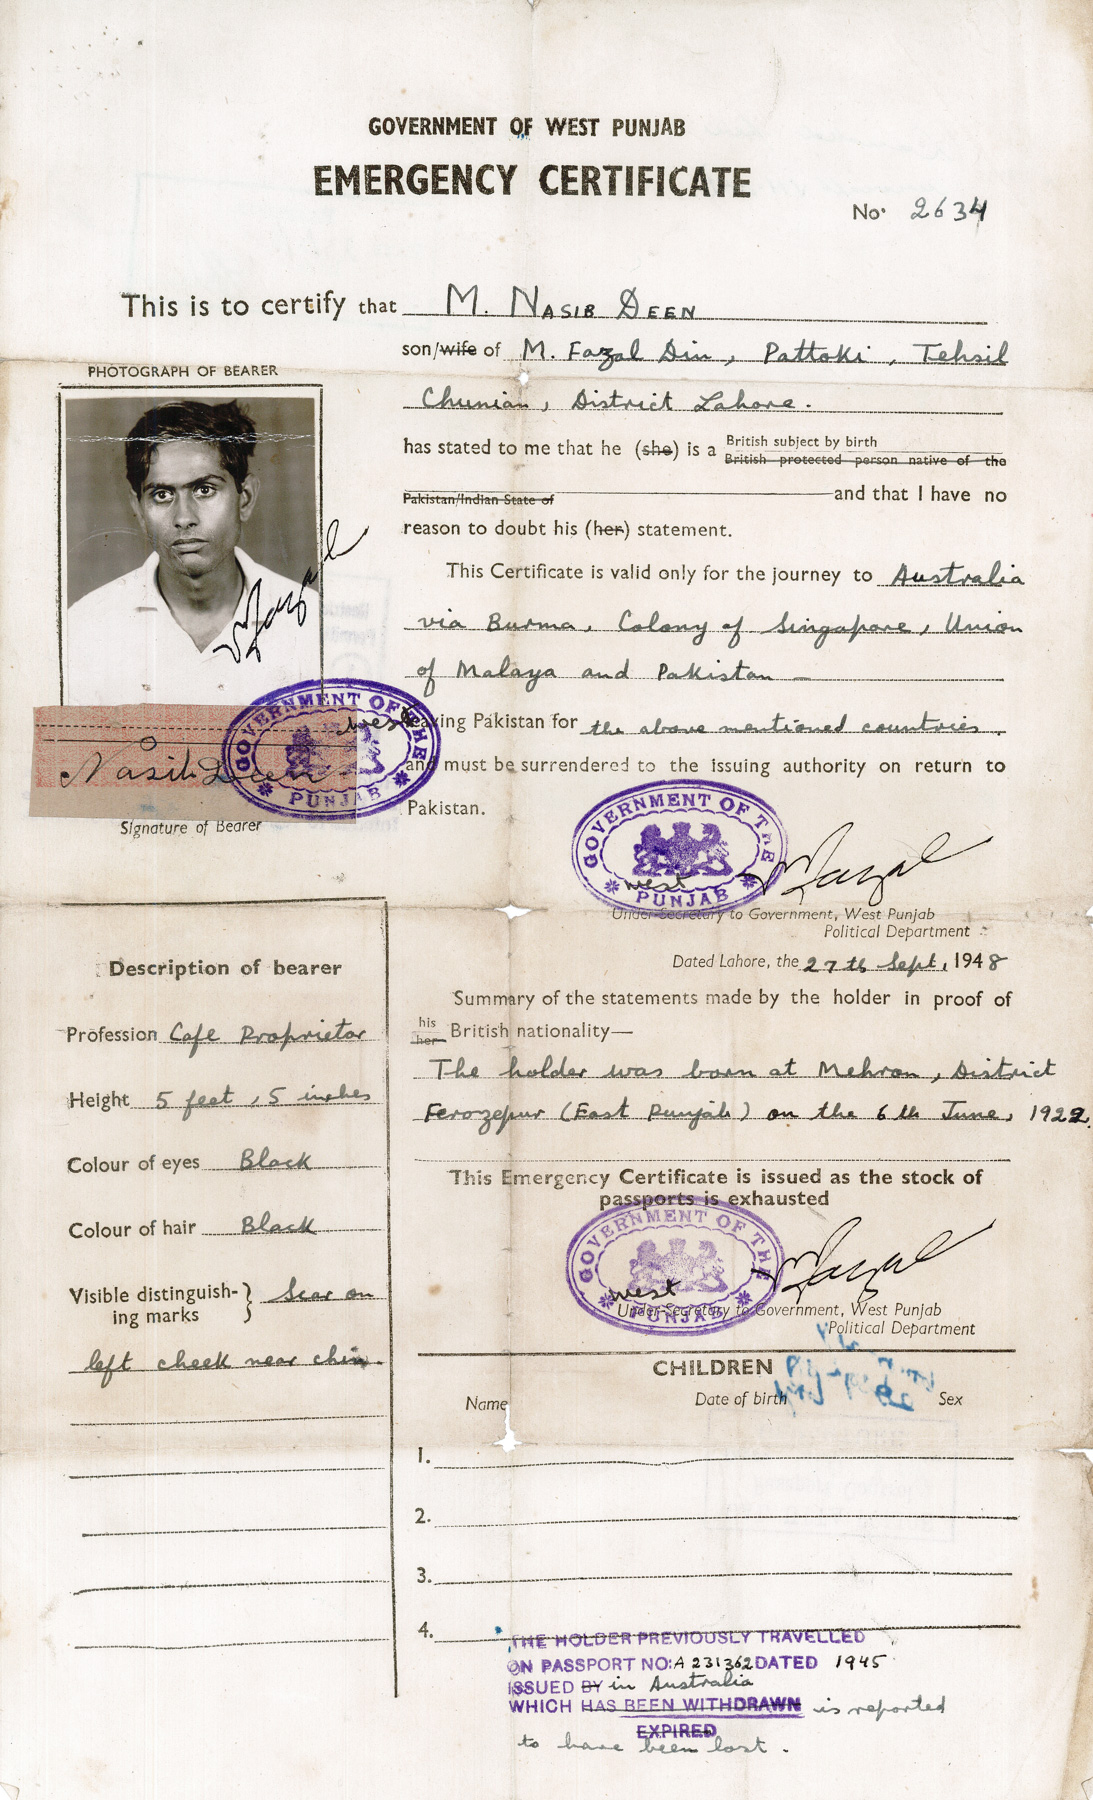 GOVERNMENT OF WEST PUNJAB
EMERGENCY CERTIFICATE
No. 2634
This is to certify that M. NASIB DEEN
son/wife of M. Fazal Din, Pattoki, Tehsil
Chunian, District Lahore.
PHOTOGRAPH OF BEARER
has stated to me that he (she) is a British subject by birth
British protected person native of the
Pakistan/Indian State of and that I have no
reason to doubt his (her) statement.
This Certificate is valid only for the journey to Australia
via Burma, Colony of Singapore, Union
of Malaya and Pakistan
leaving Pakistan for the above mentioned countries.
and must be surrendered to the issuing authority on return to
Pakistan.
MFazal
Nasib Deen
GOVERNMENT OF THE
west
PUNJAB
Signature of Bearer
GOVERNMENT OF THE
west
PUNJAB
MFazal
Under-Secretary to Government, West Punjab
Political Department
Dated Lahore, the 27th Sept, 1948
Description of bearer
Profession Cafe Proprietor
Height 5 feet, 5 inches
Colour of eyes Black
Colour of hair Black
Visible distinguish-
ing marks } Scar on
left cheek near chin.
Summary of the statements made by the holder in proof of
his
her British nationality—
The holder was born at Mehron, District
Ferozepur (East Punjab) on the 6th June, 1922.
This Emergency Certificate is issued as the stock of
passports is exhausted
GOVERNMENT OF THE
west
PUNJAB
MFazal
Under-Secretary to Government, West Punjab
Political Department
CHILDREN
Name Date of birth Sex
1.
2.
3.
4.
THE HOLDER PREVIOUSLY TRAVELLED
ON PASSPORT NO: A 231362 DATED 1945
ISSUED BY in Australia
WHICH HAS BEEN WITHDRAWN is reported
EXPIRED
to have been lost.